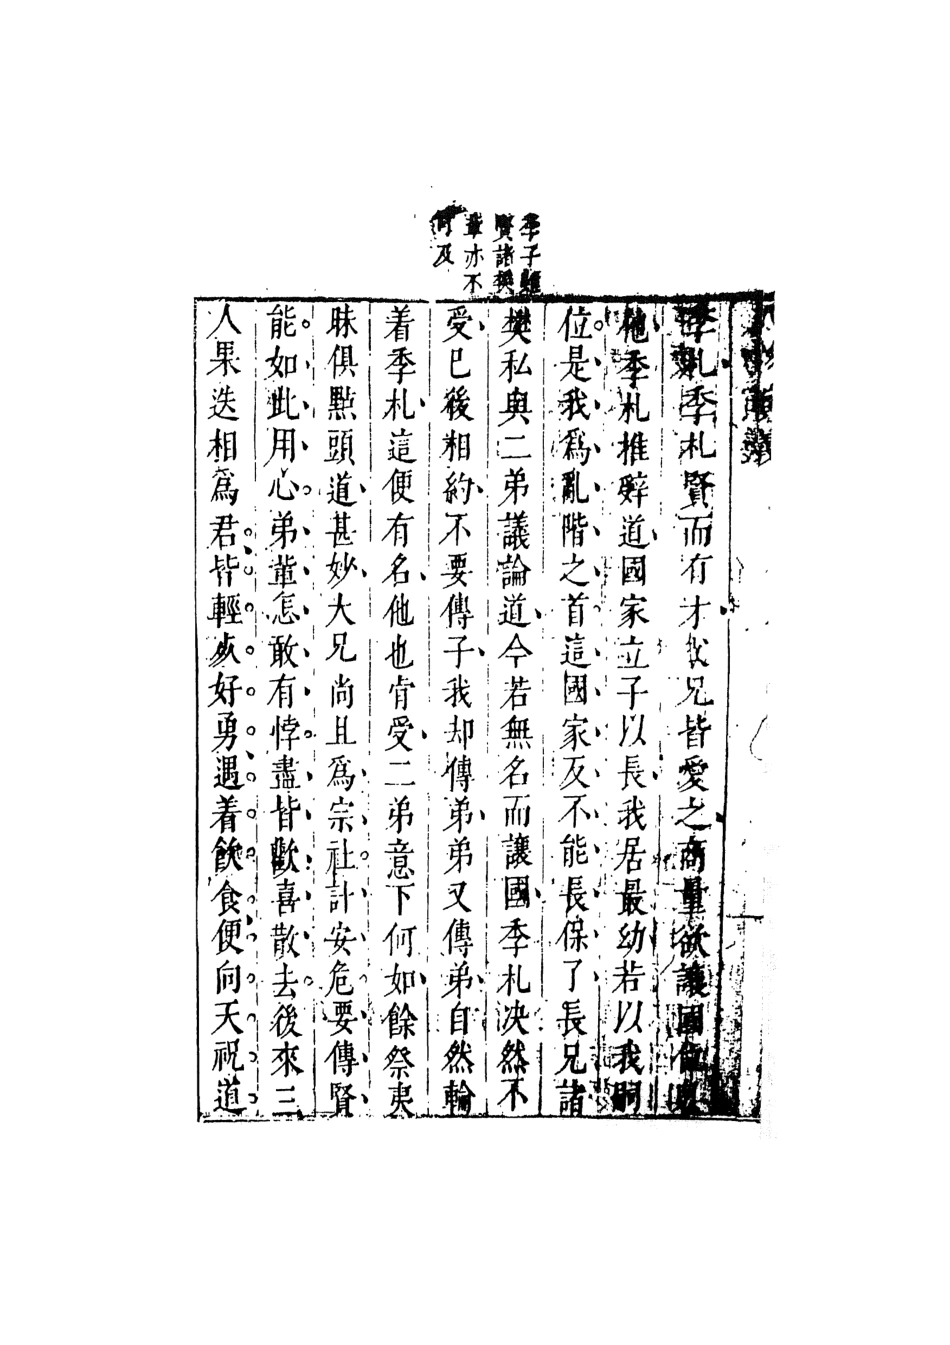 季子雖
賢諸樊
輩亦不
可及
季札季札賢而有才我兄皆愛之商量欲讓國位與
他季札推辭道國家立子以長我居最幼若以我嗣
位是我爲亂階之首這國家反不能長保了長兄諸
樊私與二弟議論道今若無名而讓國季札决然不
受已後相約不要傳子我却傳弟弟又傳弟自然輪
着季札這便有名他也肯受二弟意下何如餘祭夷
昧俱點頭道甚妙大兄尚且爲宗社計安危要傳賢
能如此用心弟輩怎敢有悖盡皆歡喜散去後來三
人果迭相爲君皆輕死好勇遇着飲食便向天祝道